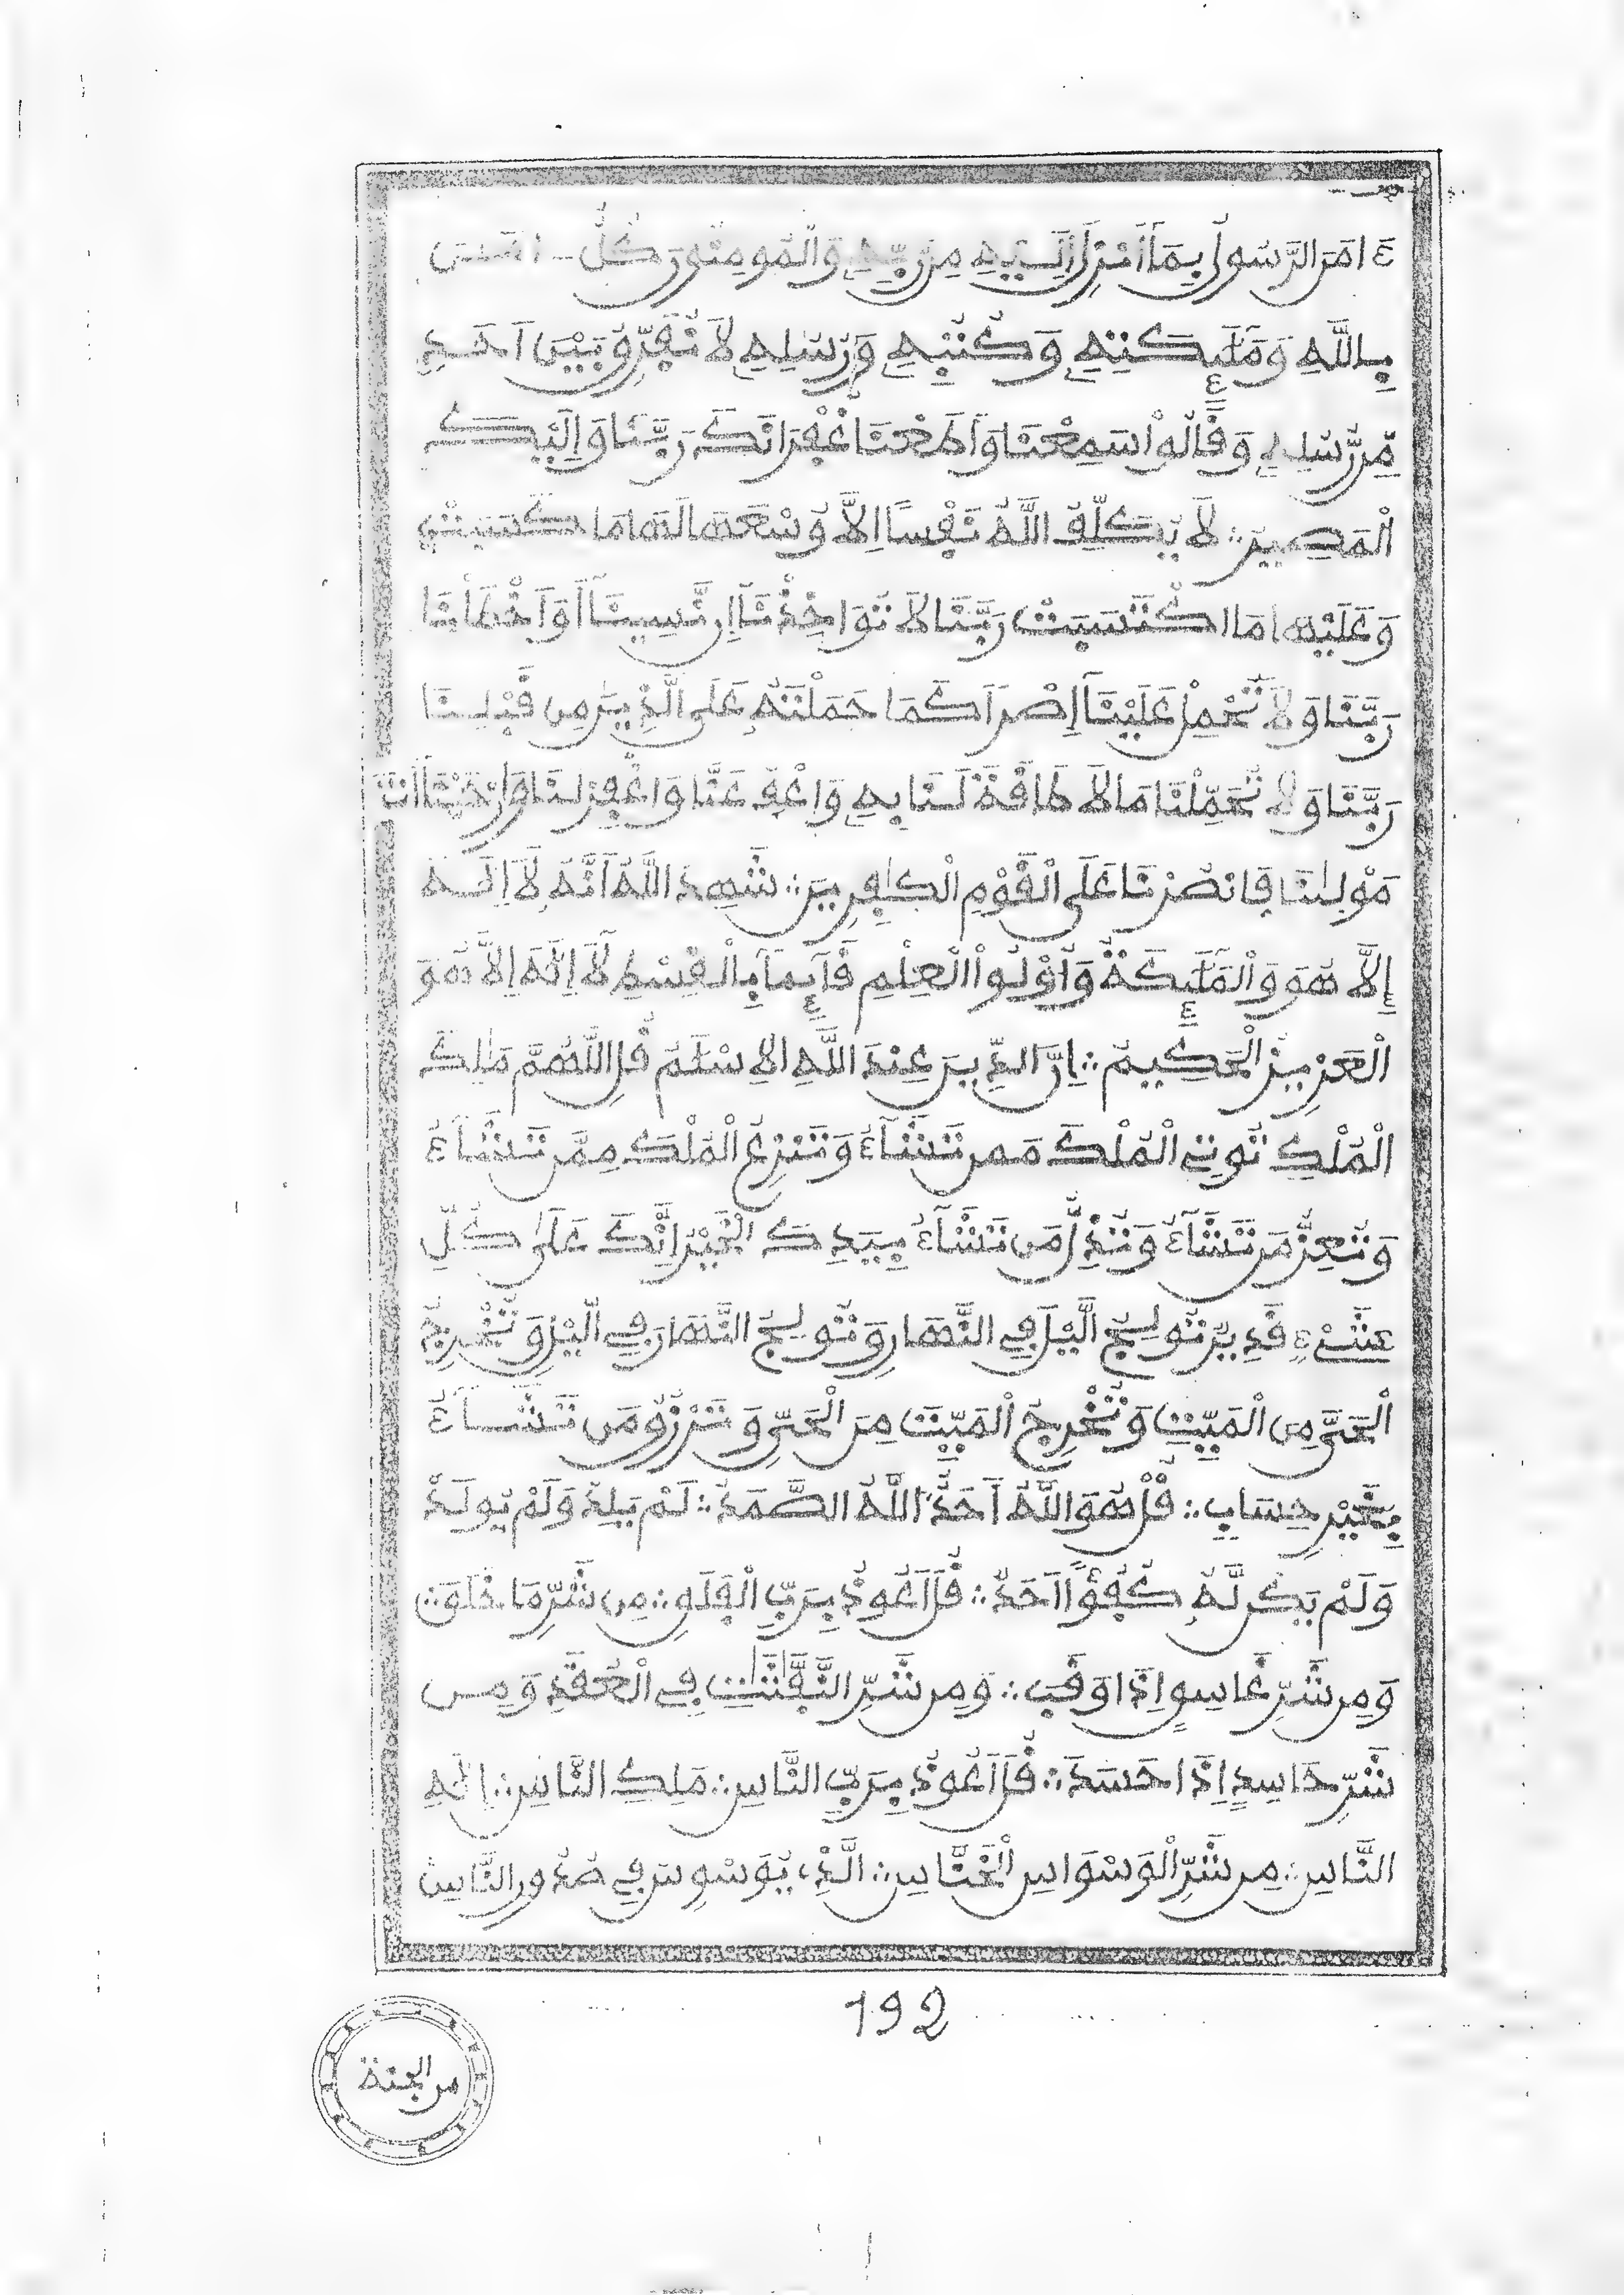 ءَامَنَ الرَّسُولُ بِمَا أُنزِلَ إِلَيْهِ مِن رَّبِّهِ وَالْمُومِنُونَ كُلٌّ ـ امَنَ
بِاللَّهِ وَمَلَٰٓئِكَتِهِ وَكُتُبِهِ وَرُسُلِهِ لَا نُفَرِّقُ بَيْنَ أَحَدٍ
مِّن رُّسُلِهِ وَقَالُواْ سَمِعْنَا وَأَطَعْنَا غُفْرَانَكَ رَبَّنَا وَإِلَيْكَ
الْمَصِيرُ ؞ لَا يُكَلِّفُ اللَّهُ نَفْسًا إِلَّا وُسْعَهَا لَهَا مَا كَسَبَتْ
وَعَلَيْهَا مَا اكْتَسَبَتْ رَبَّنَا لَا تُوَاخِذْنَآ إِن نَّسِينَآ أَوَ اَخْطَأْنَا
رَبَّنَا وَلَا تَحْمِلْ عَلَيْنَآ إِصْرًا كَمَا حَمَلْتَهُ عَلَى الَّذِينَ مِن قَبْلِنَا
رَبَّنَا وَلَا تُحَمِّلْنَا مَا لَا طَاقَةَ لَنَا بِهِ وَاعْفُ عَنَّا وَاغْفِرْ لَنَا وَارْحَمْنَآ أَنتَ
مَوْلَىٰنَا فَانصُرْنَا عَلَى الْقَوْمِ الْكَٰفِرِينَ ؞ شَهِدَ اللَّهُ أَنَّهُ لَآ إِلَٰهَ
إِلَّا هُوَ وَالْمَلَٰٓئِكَةُ وَأُوْلُواْ الْعِلْمِ قَآئِمًا بِالْقِسْطِ لَآ إِلَٰهَ إِلَّا هُوَ
الْعَزِيزُ الْحَكِيمُ ؞ إِنَّ الدِّينَ عِندَ اللَّهِ الِاسْلَٰمُ قُلِ اللَّهُمَّ مَٰلِكَ
الْمُلْكِ تُوتِي الْمُلْكَ مَن تَشَآءُ وَتَنزِعُ الْمُلْكَ مِمَّن تَشَآءُ
وَتُعِزُّ مَن تَشَآءُ وَتُذِلُّ مَن تَشَآءُ بِيَدِكَ الْخَيْرُ إِنَّكَ عَلَىٰ كُلِّ
شَيْءٍ قَدِيرٌ تُولِجُ الَّيْلَ فِي النَّهَارِ وَتُولِجُ النَّهَارَ فِي الَّيْلِ وَتُخْرِجُ
الْحَيَّ مِنَ الْمَيِّتِ وَتُخْرِجُ الْمَيِّتَ مِنَ الْحَيِّ وَتَرْزُقُ مَن تَشَآءُ
بِغَيْرِ حِسَابٍ ؞ قُلْ هُوَ اللَّهُ أَحَدٌ اللَّهُ الصَّمَدُ ؞ لَمْ يَلِدْ وَلَمْ يُولَدْ
وَلَمْ يَكُن لَّهُ كُفُؤًا أَحَدٌ ؞ قُلَ اَعُوذُ بِرَبِّ الْفَلَقِ ؞ مِن شَرِّ مَا خَلَقَ ؞
وَمِن شَرِّ غَاسِقٍ إِذَا وَقَبَ ؞ وَمِن شَرِّ النَّفَّٰثَٰتِ فِي الْعُقَدِ وَمِن
شَرِّ حَاسِدٍ إِذَا حَسَدَ ؞ قُلَ اَعُوذُ بِرَبِّ النَّاسِ ؞ مَلِكِ النَّاسِ ؞ إِلَٰهِ
النَّاسِ ؞ مِن شَرِّ الْوَسْوَاسِ الْخَنَّاسِ ؞ الَّذِي يُوَسْوِسُ فِي صُدُورِ النَّاسِ
192
من الجنة